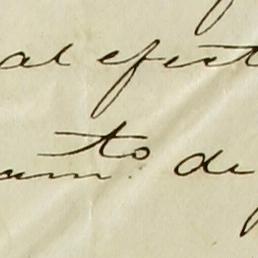 al efect
um.to de